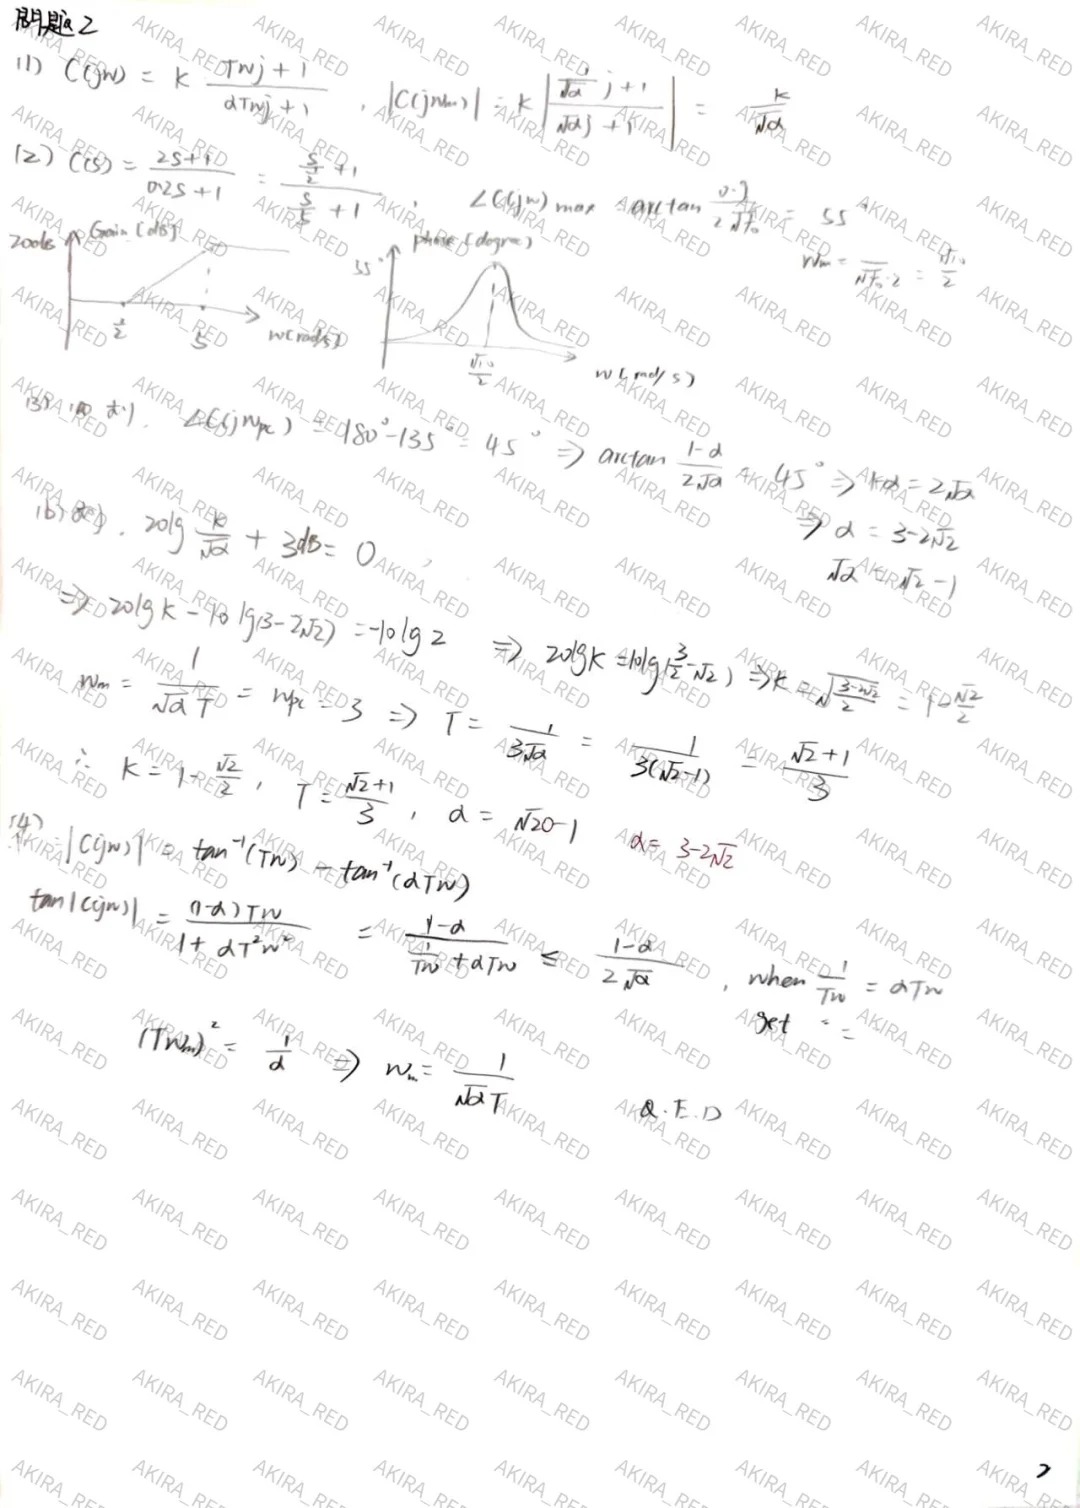 問題2
(1) C(jw) = K \frac{Twj+1}{αTwj+1} , |C(jwm)| = K |\frac{\frac{1}{√α}j+1}{√αj+1}| = \frac{K}{√α}
(2) C(s) = \frac{2s+1}{0.2s+1} = \frac{\frac{s}{\frac{1}{2}}+1}{\frac{s}{5}+1} , ∠C(jw) max = arctan = 55°
wm = = \frac{√10}{2}
20dB Gain (dB) \frac{1}{2} 5 w(rad/s)
55° phase (degree) \frac{√10}{2} w(rad/s)
(3) ∠C(jwpc) = 180° - 135° = 45° ⇒ arctan \frac{1-α}{2√α} = 45° ⇒ 1-α = 2√α
⇒ α = 3-2√2
√α = √2-1
(b) 20lg \frac{K}{√α} + 3dB = 0 ,
⇒ 20lgK - 10lg(3-2√2) = -10lg2 ⇒ 20lgK = 10lg(\frac{3}{2}-√2) ⇒ K = \sqrt{\frac{3-2√2}{2}} = 1-\frac{√2}{2}
wm = \frac{1}{√α T} = wpc = 3 ⇒ T = \frac{1}{3√α} = \frac{1}{3(√2-1)} = \frac{√2+1}{3}
∴ K = 1-\frac{√2}{2} , T = \frac{√2+1}{3} , α = √20-1 α = 3-2√2
(4) |C(jw)| = tan⁻¹(Tw) - tan⁻¹(αTw)
tan|C(jw)| = \frac{(1-α)Tw}{1+αT²w²} = \frac{1-α}{\frac{1}{Tw}+αTw} ≤ \frac{1-α}{2√α} , when \frac{1}{Tw} = αTw
get =
(Twm)² = \frac{1}{α} ⇒ wm = \frac{1}{√αT}
Q.E.D
2
AKIRA_RED